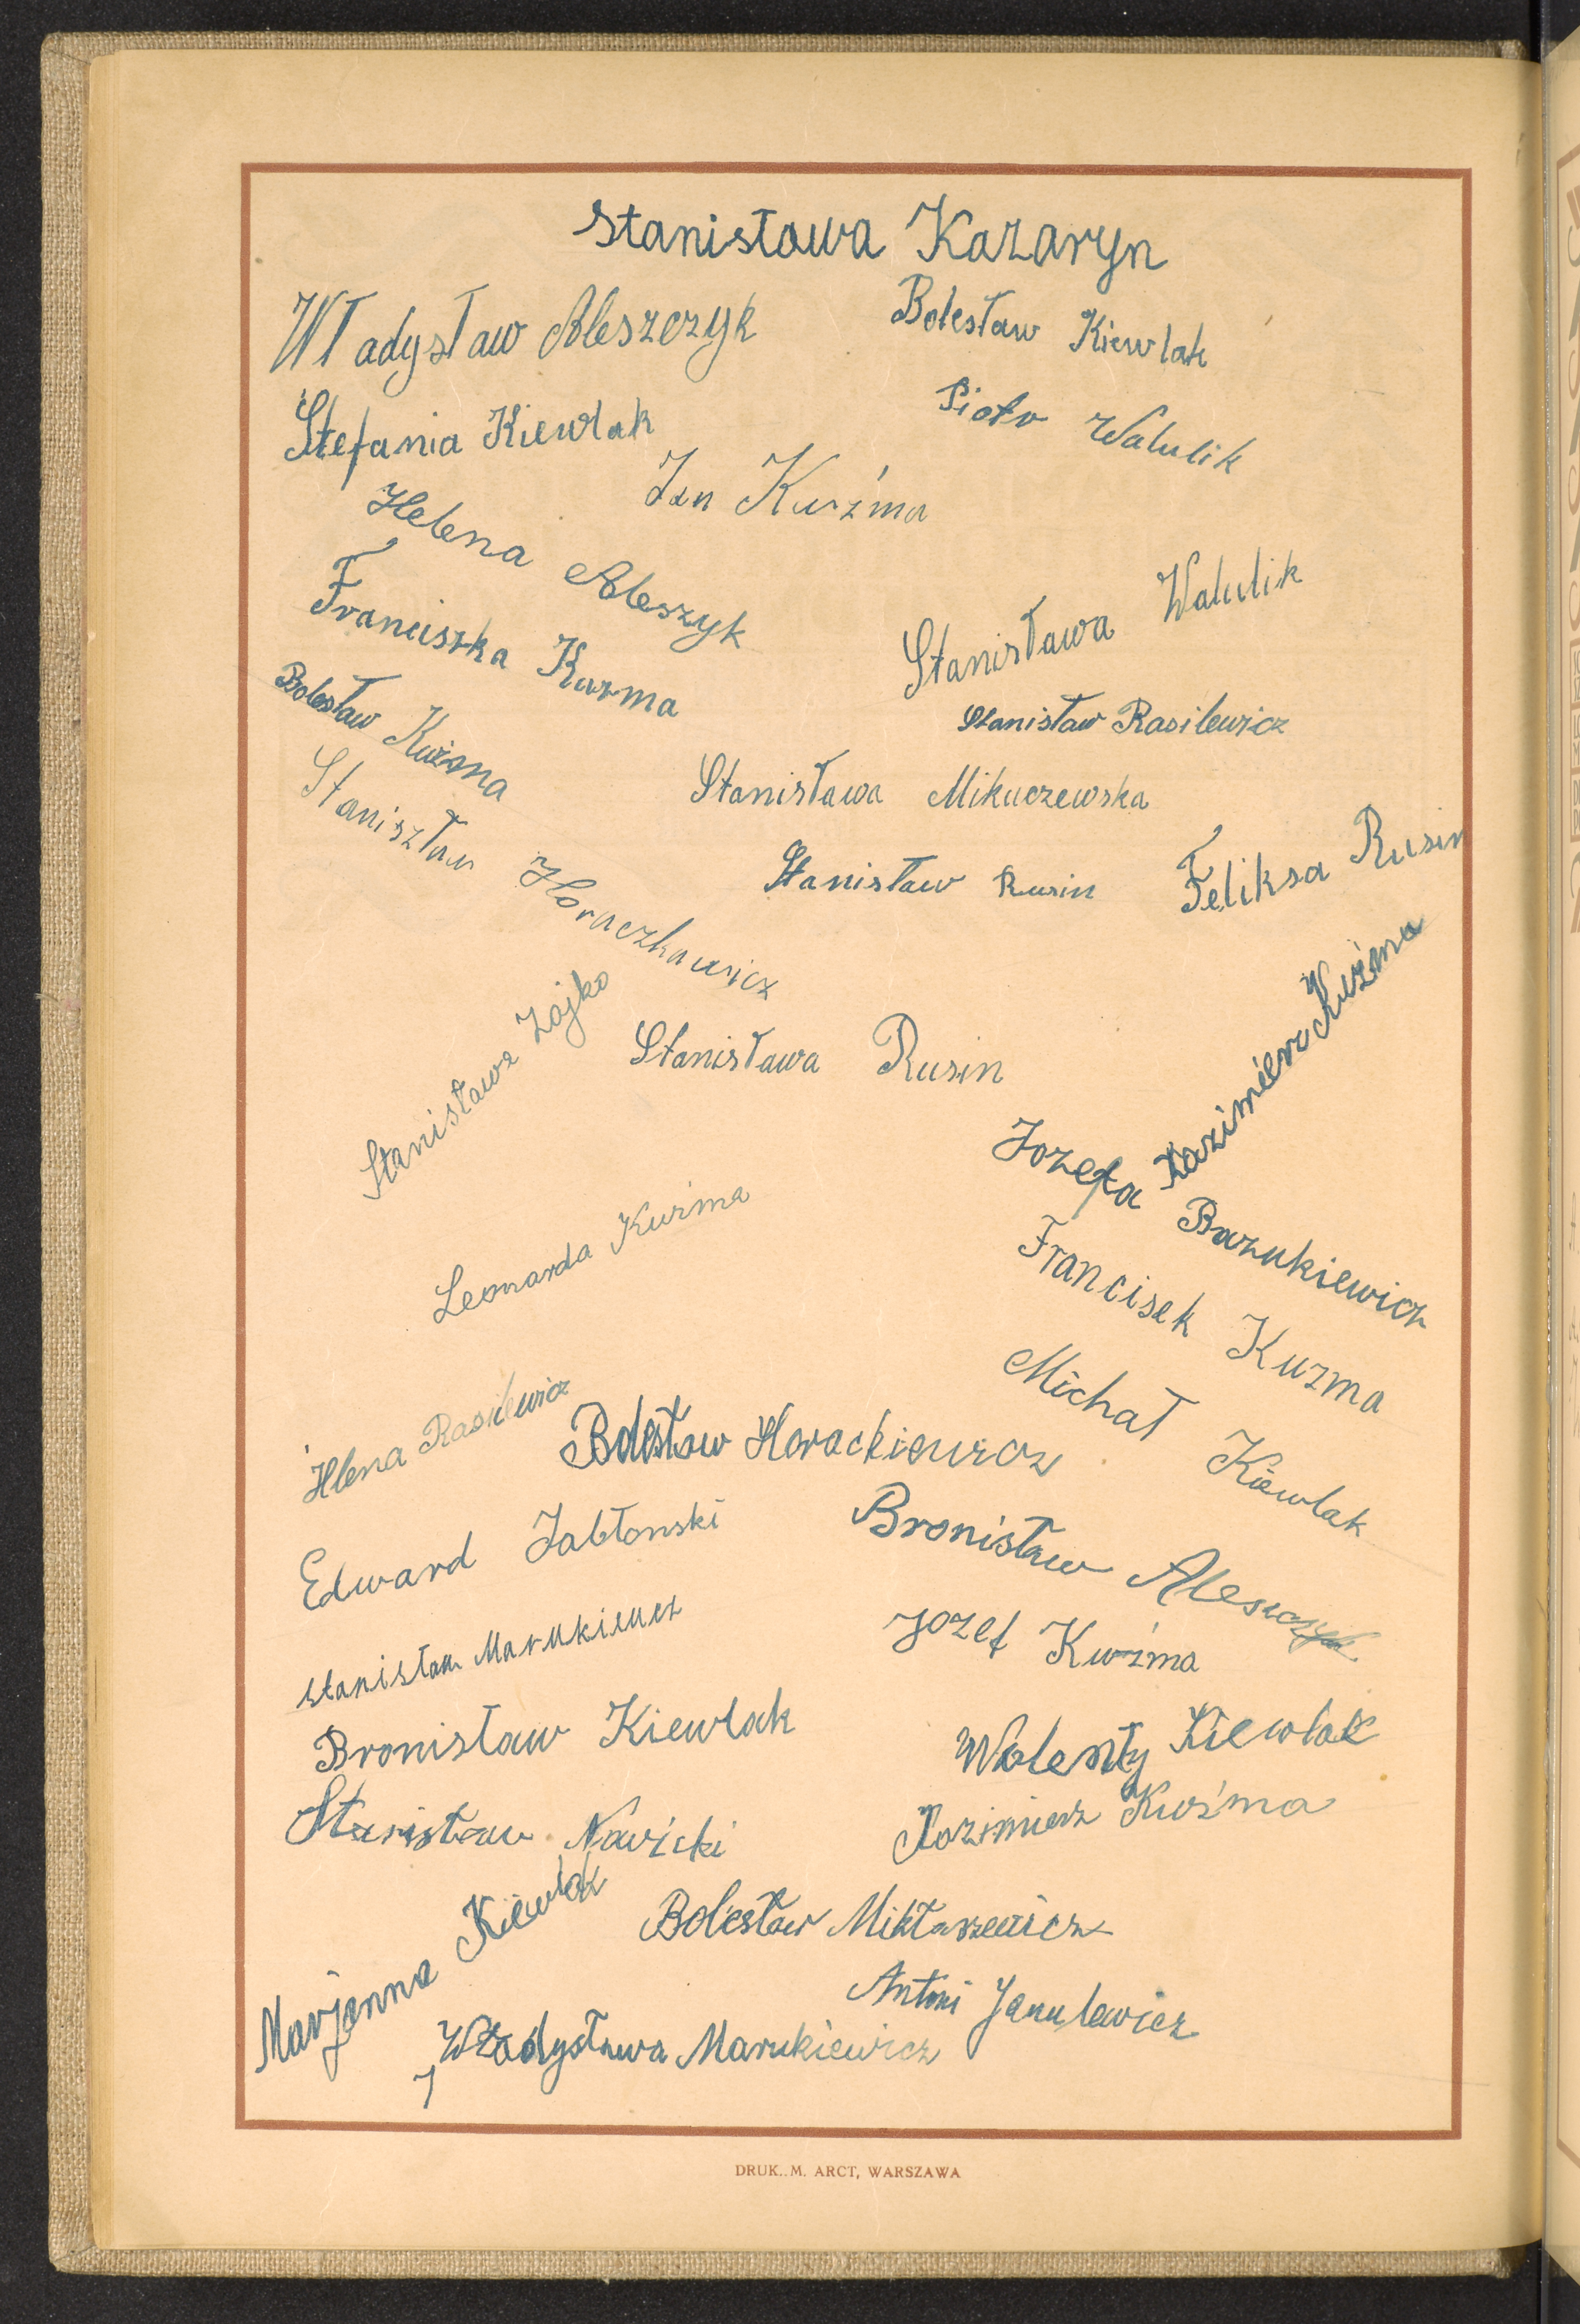 Stanisława Kazaryn
Władysław Aleszczyk
Bolesław Kiewlak
Stefania Kiewlak
Piotr Walulik
Jan Kuźma
Helena Aleszyk
Franciszka Kuzma
Stanisława Walulik
Bolesław Kuźma
Stanisław Rasilewicz
Stanisława Mikuczewska
Staniszław Horaczkawicz
Stanisław Rusin
Feliksa Rusin
Stanisława Zajko
Stanisława Rusin
Kazimierz Kuźma
Jozefa Bazukiewicz
Leonarda Kuzima
Francisek Kuzma
Michał Kiewlak
Hlena Rasilewicz
Bolesław Horackiewicz
Edward Jabłonski
Bronisław Alesczyk
stanisław Marukiewcz
Jozef Kuźma
Bronisław Kiewlak
Walenty Kiewlak
Stanisław Nawicki
Kazimierz Kuźma
Marjanna Kiewlak
Bolesław Miktaszewicz
Antoni Janulewicz
Władysława Marukiewicz
DRUK. M. ARCT, WARSZAWA